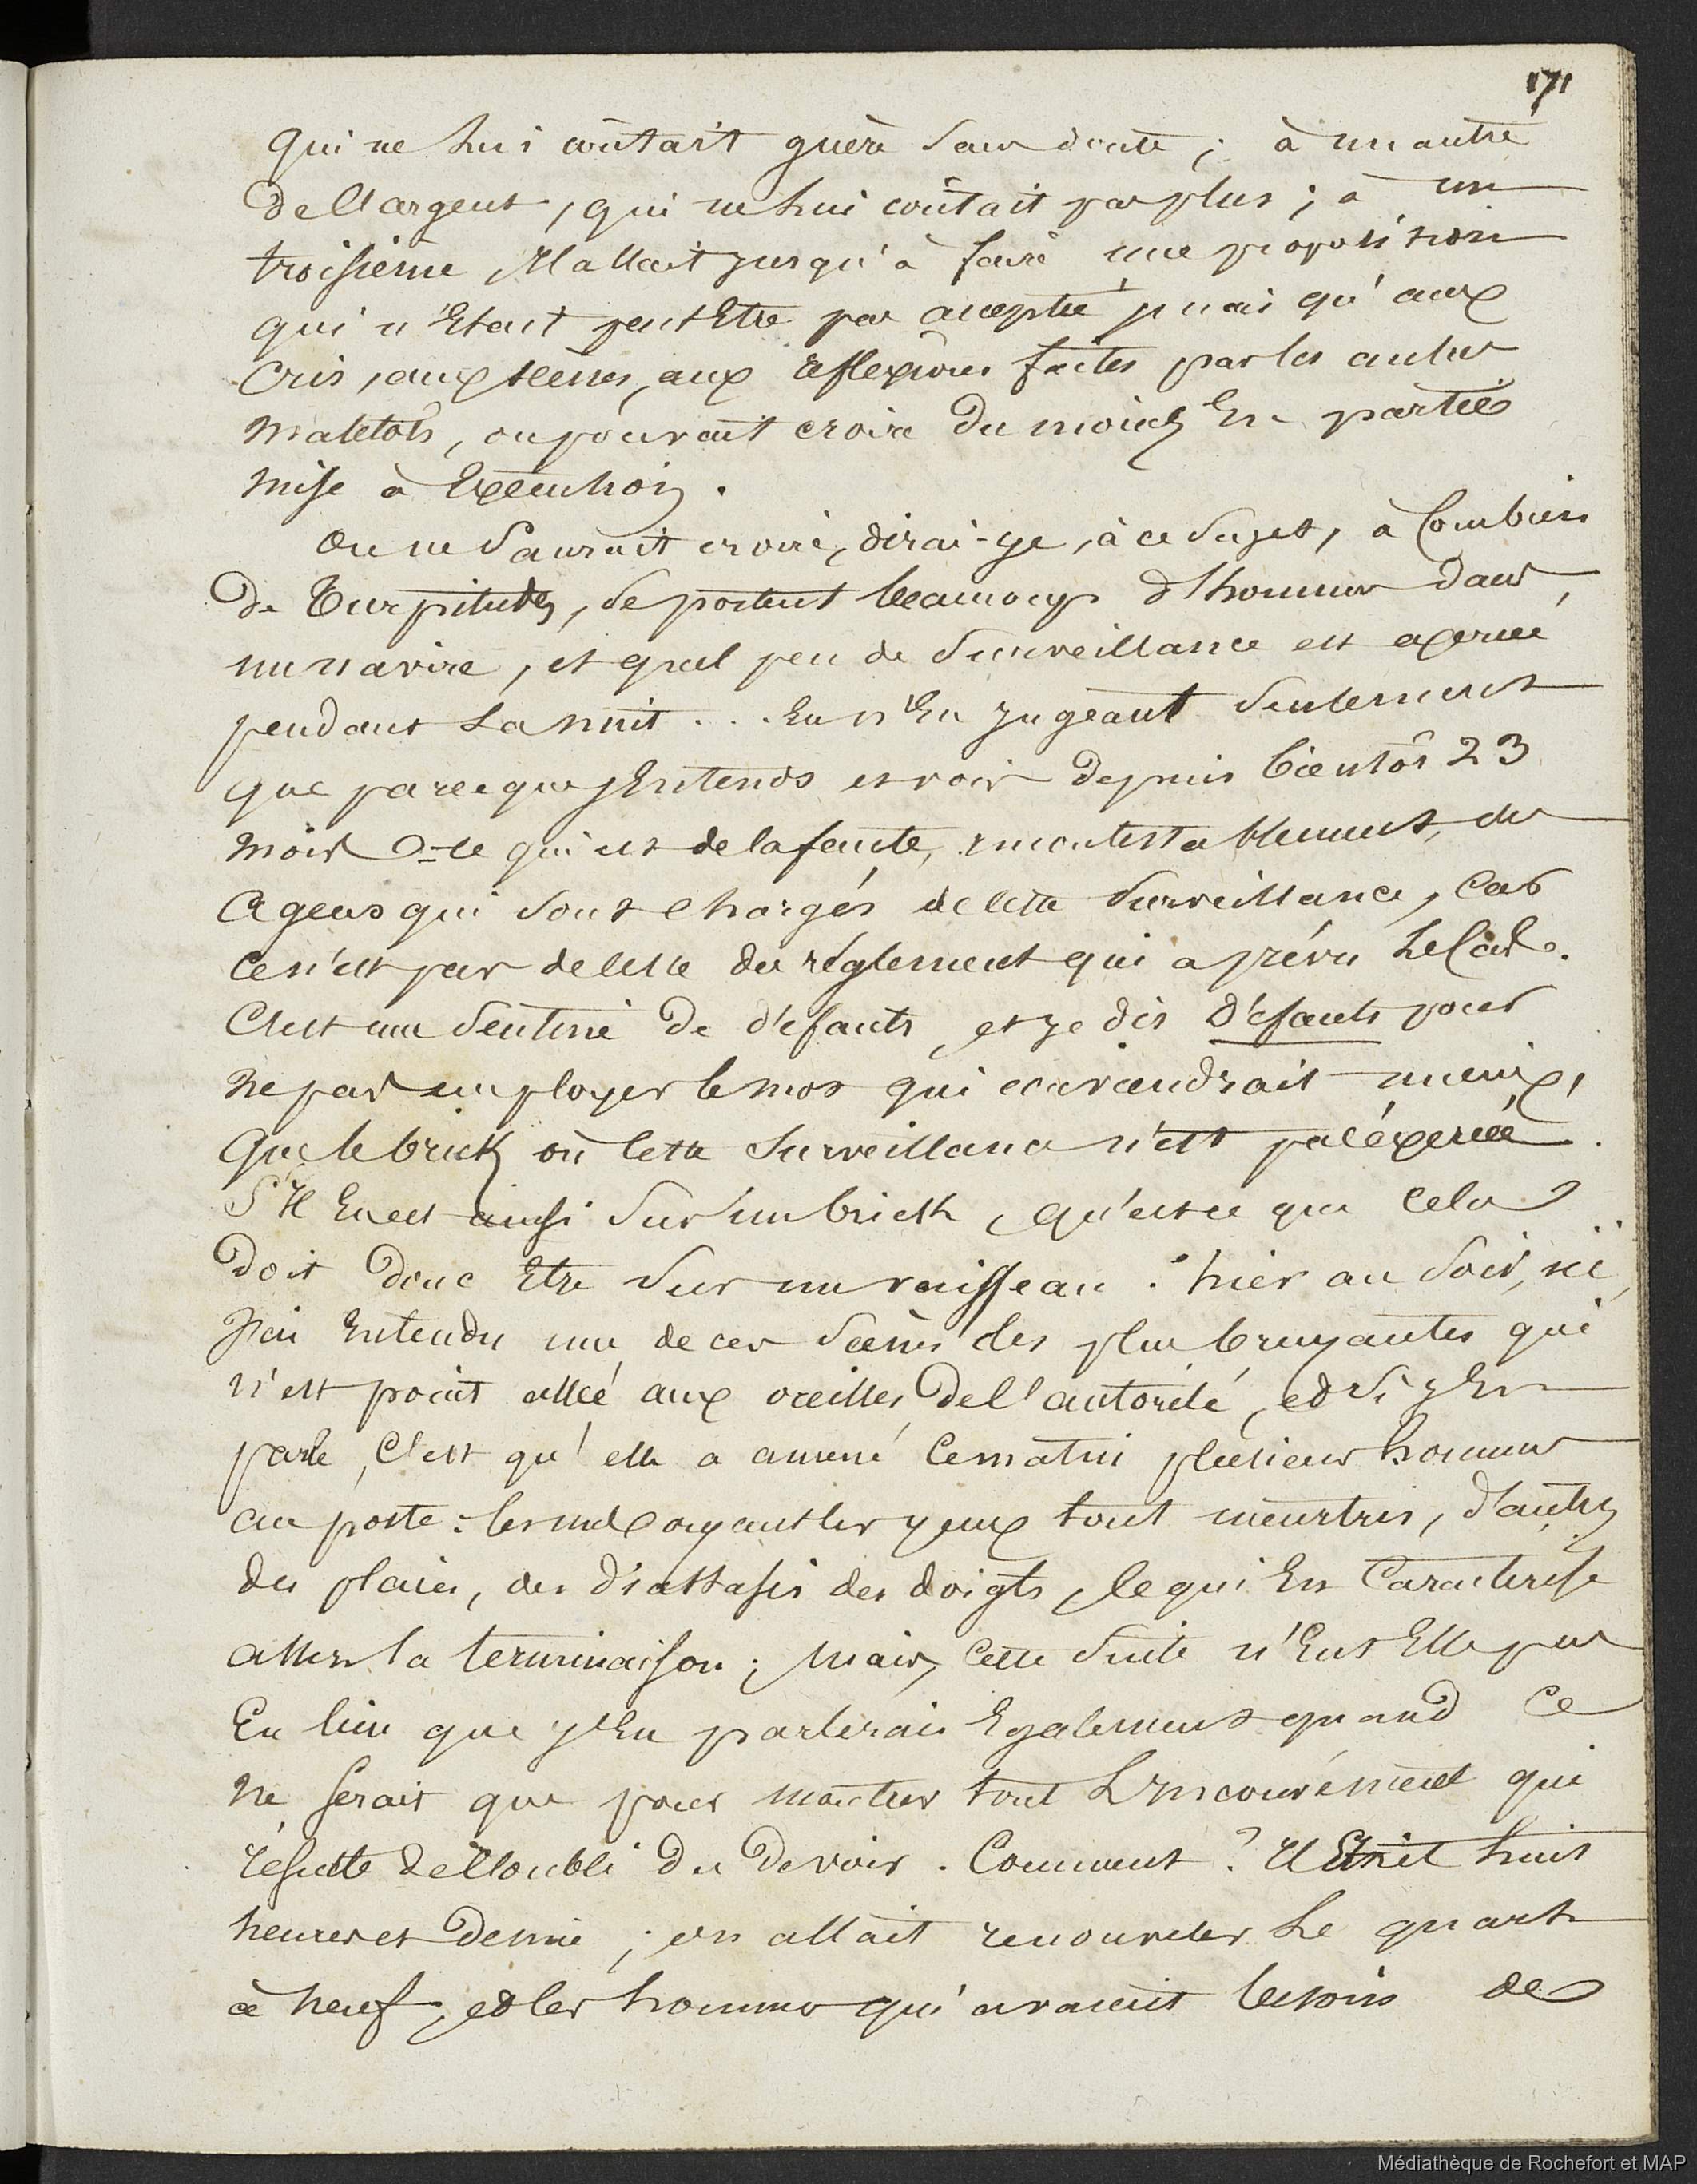 171
qui ne lui coûtait guère sans doute ; à un autre
de l'argent, qui ne lui coûtait pas plus ; à un
troisième, il allait jusqu'à faire une proposition
qui n'était peut être pas acceptée, mais qu'aux
cris, aux scènes, aux réflexions faites par les autres
matelots, on pouvait croire du moins en partie
mise à exécution.
On ne saurait croire, dirai-je, à ce sujet, à combien
de turpitudes, se portent beaucoup d'hommes dans
un navire, et quel peu de surveillance est exercée
pendant la nuit... En n'en jugeant seulement
que par ce que j'entends et vois depuis bientôt 23
mois ce qui est de la faute, incontestablement, des
agens qui sont chargés de cette surveillance, car
ce n'est pas de celle du réglement qui a prévu le cas.
C'est une sentine de défauts, et je dis défauts pour
ne pas employer le mot qui conviendrait mieux,
que le brick où cette surveillance n'est pas éxercée.
S'il en est ainsi sur un brick, qu'est ce que cela
doit donc être sur un vaisseau. hier au soir,
j'ai entendu une de ces scènes des plus bruyantes qui
n'est point allée aux oreilles de l'autorité, et si j'en
parle, c'est qu'elle a amené ce matin plusieurs hommes
au poste : les uns ayant les yeux tout meurtris, d'autres
des plaies, des diastasis des doigts, ce qui en caractérise
assez la terminaison ; mais, cette suite n'eut elle pas
eu lieu que j'en parlerais également quand ce
ne serait que pour montrer tout l'inconvénient qui
résulte de l'oubli du devoir. Comment ? il était huit
heures et demie ; on allait renouveler le quart
à neuf, et les hommes qui avaient besoin de
Médiathèque de Rochefort et MAP